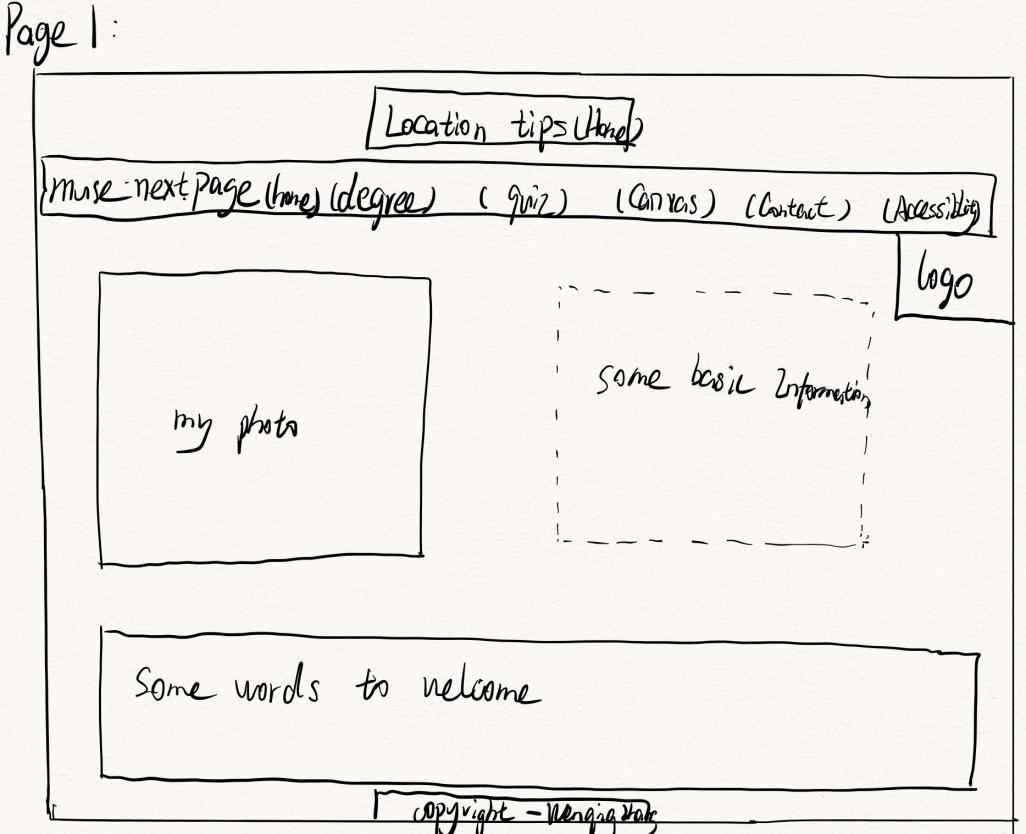 Page 1:
Location tips (Home)
muse-next page (home) (degree) (quiz) (Canvas) (Contact)
logo
my photo
some basic Information
Some words to welcome
copyright -